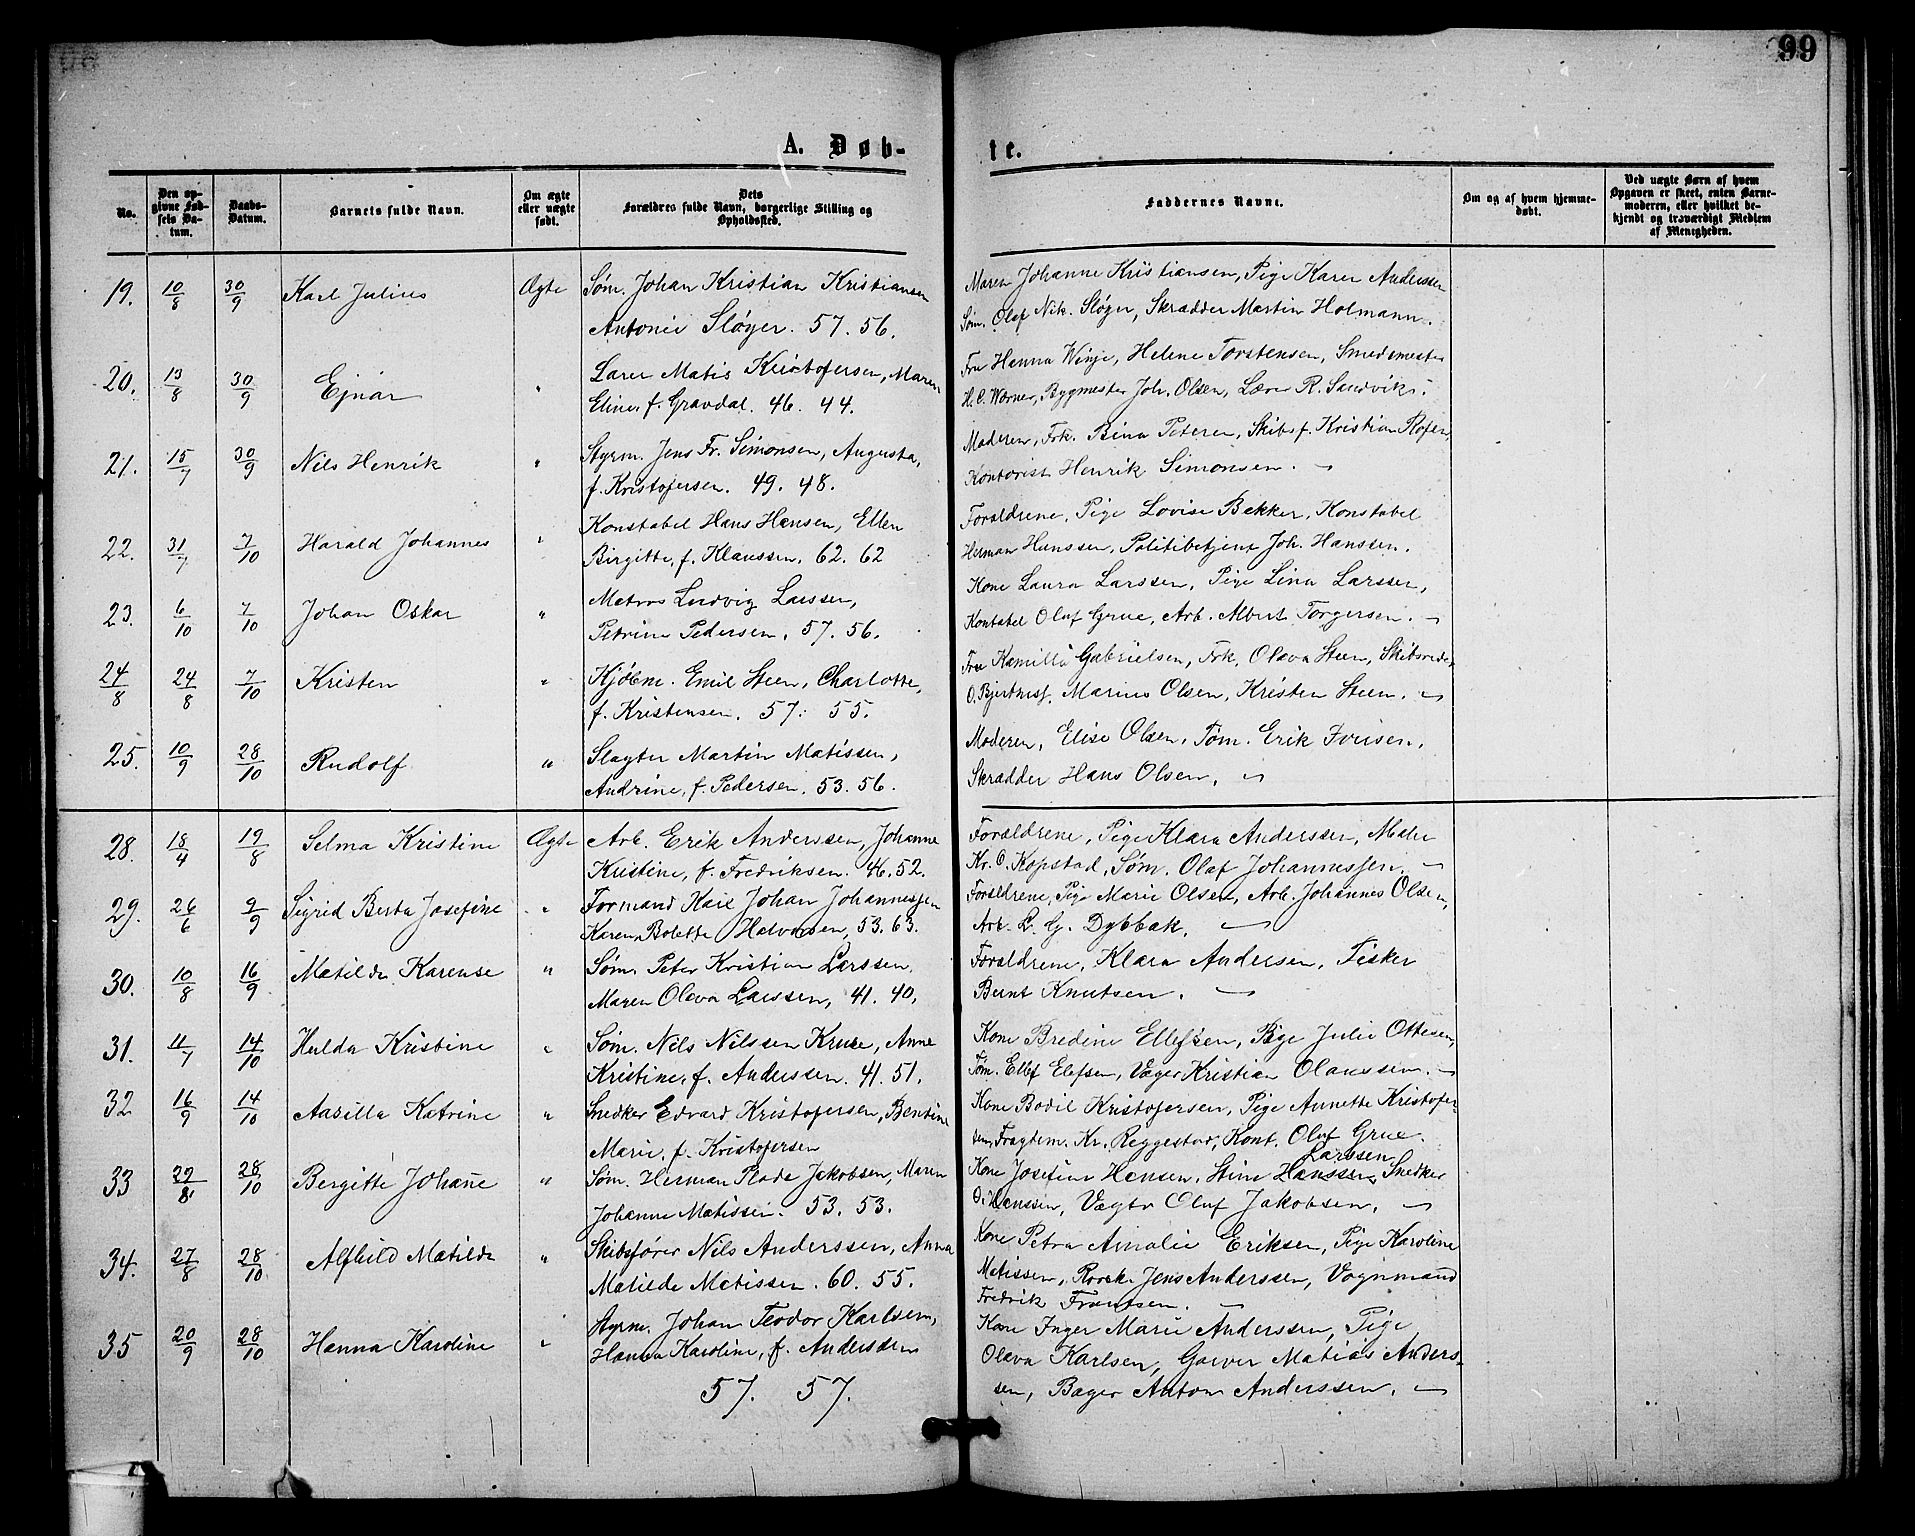 99
A. Døb-
te.
No.
Den op-
givne Fød-
sels Da-
tum.
Daabs-
Datum.
Barnets fulde Navn.
Om ægte
eller uægte
født.
Dets
Forældres fulde Navn, borgerlige Stilling og
Opholdssted.
Faddernes Navne.
Om og af hvem hjemme-
døbt.
Ved uægte Børn af hvem
Opgaven er skeet, enten Barne-
moderen, eller hvilket be-
kjendt og troværdigt Medlem
af Menigheden.
19. 10/8 30/9 Karl Julius Ægte Søm. Johan Kristian Kristiansen
Antonie Sløger. 57. 56.
Maren Johanne Kristiansen, Pige Karen Anderssen
Søm. Olaf Nik. Sløger, Skrædder Martin Holmann.
20. 13/8 30/9 Ejnar " Lærer Matis Kristofersen, Maren
Eline, f. Gravdal. 46. 44.
Fru Hanna Winje, Helene Torstensen, Smedmester
H. C. Wærner, Bygmester Joh. Olsen, Lærer R. Sandvik.
21. 15/7 30/9 Nils Henrik " Styrm. Jens Fr. Simonsen, Augusta,
f. Kristofersen. 49. 48.
Moderen, Frk. Bina Petersen, Skibsf. Kristian
Kontorist Henrik Simonsen.
22. 31/7 7/10 Harald Johannes " Konstabel Hans Hansen, Ellen
Birgitte, f. Klaussen. 62. 62
Forældrene, Pige Lovise Bakker, Konstabel
Herman Hanssen, Politibetjent Joh. Hanssen.
23. 6/10 7/10 Johan Oskar " Matros Ludvig Larssen,
Petrine Pedersen. 57. 56.
Kone Laura Larssen, Pige Lina Larssen,
Kontabel Oluf Grue, Arb. Albert Torgersen.
24/8 24/8 7/10 Kristen " Kjøbm. Emil Steen, Charlotte,
f. Kristensen. 57. 55.
Fru Kamilla Gabrielsen, Frk. Olava Steen, Skibsrede
Marius Olsen, Kristen Steen.
25. 10/9 28/10 Rudolf " Slagter Martin Matissen,
Andrine, f. Pedersen. 53. 56.
Moderen, Elise Olsen, Tøm. Erik Iversen,
Skrædder Hans Olsen.
28. 18/4 19/8 Selma Kristine Ægte Arb. Erik Anderssen, Johanne
Kristine, f. Fredriksen. 46. 52.
Forældrene, Pige Klara Anderssen, Maler
Kr. O. Kopstad, Søm. Olaf Johannessen.
29. 26/6 9/9 Sigrid Berta Josefine " Formand Karl Johan Johannessen
Karen Bolette Halvorsen, 53. 63.
Forældrene, Pige Marie Olsen, Arb. Johannes Olsen,
Arb. L. G. Dybbak.
30. 10/8 16/9 Matilda Karense " Søm. Peter Kristian Larssen,
Maren Olava Larssen, 41. 40.
Forældrene, Klara Andersen, Fisker
Bernt Knutsen.
31. 11/7 14/10 Hulda Kristine " Søm. Nils Nilssen Kruse, Anne
Kristine, f. Anderssen. 41. 51.
Kone Bredine Ellefsen, Pige Julie Ottesen,
Tøm. Ellef Elefsen, Væger Kristian Olaussen.
32 16/9 14/10 Aasilla Katrine " Snedker Edvard Kristofersen, Bentine
Marie, f. Kristofersen
Kone Bodil Kristofersen, Pige Annette Kristofer-
sen, Fragtem. Kr. Reggestad, Konst. Oluf Grue.
33 22/8 28/10 Bergitte Johane " Søm. Herman Plade Jakobsen, Maren
Johanne Matissen. 53. 53.
Larssen
Kone Josefine Hansen, Stine Hanssen, Snedker
O. Hanssen, Vægter Oluf Jakobsen.
34. 27/8 28/10 Alfhild Matilde " Skibsfører Nils Anderssen, Anna
Matilde Matissen. 60. 55.
Kone Petra Amalie Eriksen, Pige Karoline
Matissen, Jens Anderssen, Vognmand
Fredrik Frantsen.
35 20/9 28/10 Hanna Karoline " Styrm. Johan Teodor Karlsen,
Hanna Karoline, f. Andersen
57. 57.
Kone Inger Marie Anderssen, Pige
Olava Karlsen, Garver Matias Anders-
sen, Bager Anton Anderssen.